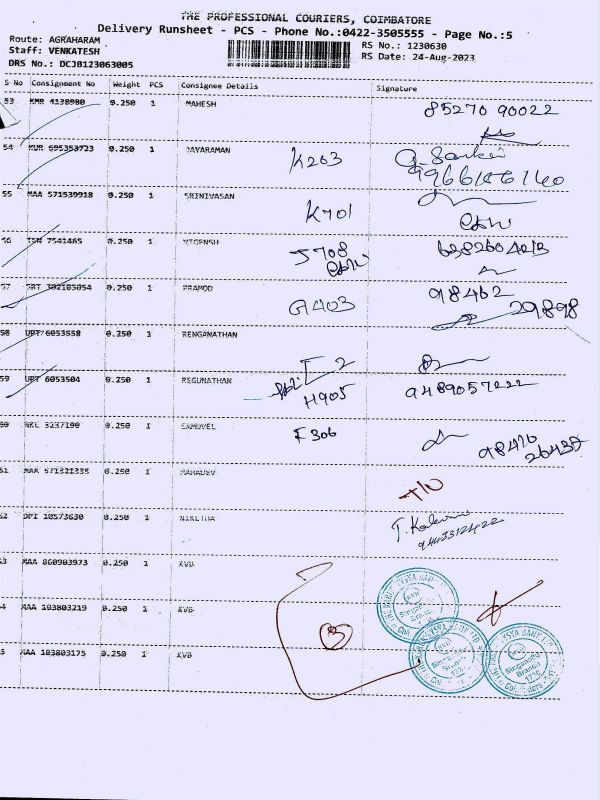 THE PROFESSIONAL COURIERS, COIMBATORE
Delivery Runsheet - PCS - Phone No.:0422-3505555 - Page No.:5
Route: AGRAHARAM
RS No.: 1230630
Staff: VENKATESH
RS Date: 24-Aug-2023
DRS No.: DCJB123063005
S No Consignment No Weight PCS Consignee Details Signature
53 KMR 4138980 0.250 1 MAHESH 85270 90022
54 KUR 695353723 0.250 1 JAYARAMAN K203 G. Sankar
55 MAA 571539918 0.250 1 SRINIVASAN K701
7541465 0.250 1 J708 638260
57 SRT 302105054 0.250 1 PRAMOD G403 98462 29898
58 UPT 6053558 0.250 1 RENGANATHAN
59 UPT 6053504 0.250 1 REGUNATHAN H905 9489057222
60 NKL 3237190 0.250 1 SAMUVEL F306 98416 26437
61 MAA 571321335 0.250 1 MAHADEV
DPI 18573630 0.250 1 NIKITHA
MAA 860903973 0.250 1 KVB
MAA 103803219 0.250 1 KVB
MAA 103803175 0.250 1 KVB